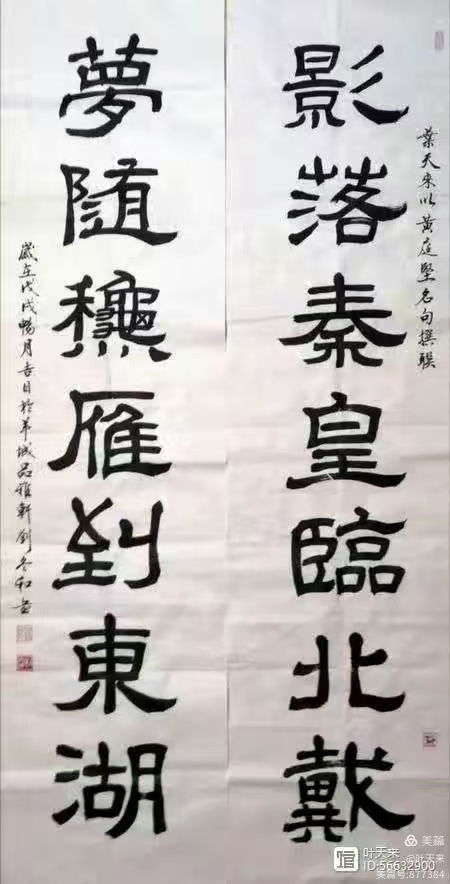 葉天來以黃庭堅名句撰聯
影落秦皇臨北戴
夢隨龝雁到東湖
歲在戊戌暢月吉日於羊城品雅軒劉冬和書
美篇
叶天来
ID:56632900
@叶天来
美篇号:877384